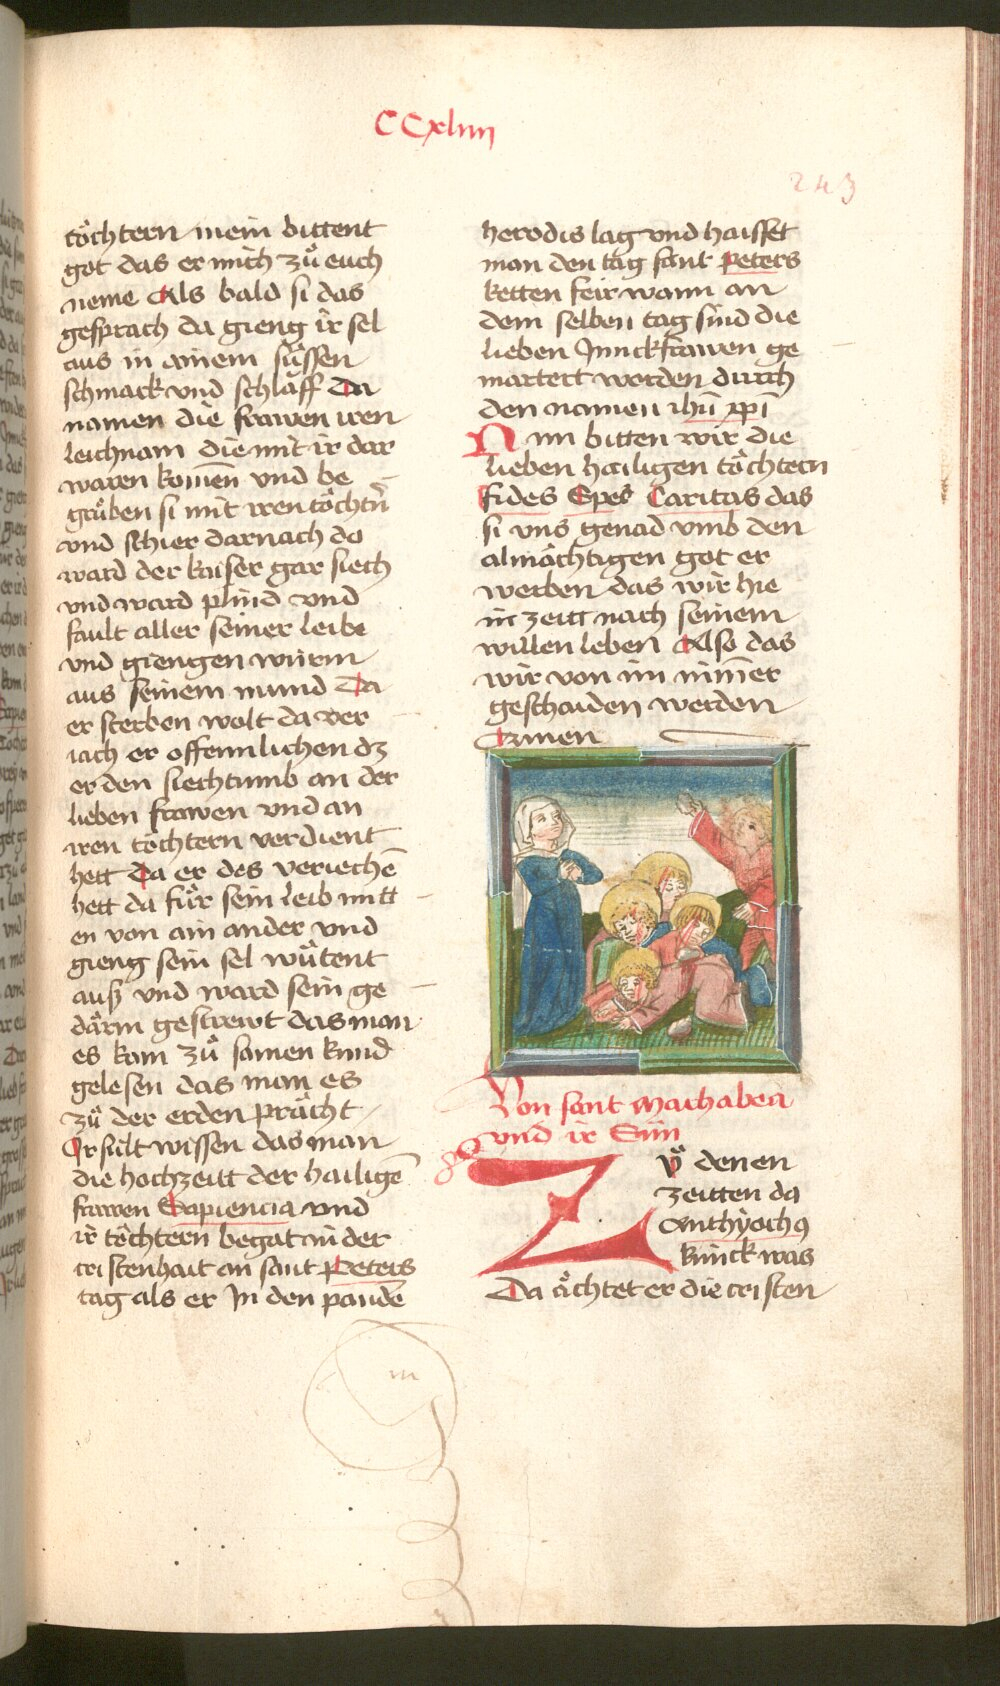 CCxliiii
243
töchtern mein bittent
got das er mich zů euch
neme Als bald si das
gesprach da gieng ir sel
aus in ainem süssen
schmack vnd schläff Da
namen die frawen iren
leichnam die mit ir dar
waren kom̄en vnd be
grůben si mit iren töchtn̄
vnd schier darnach do
ward der kaiser gar siech
vnd ward plind vnd
fault aller seiner leibe
vnd giengen würm
aus seinem mund Da
er sterben wolt da ver
iach er offennlichen dz
er den siechtumb an der
lieben frawen vnd an
iren töchtern verdient
hett Da er des veriechē
hett da für sein leib mitt
en von ain ander vnd
gieng sein sel wůtent
auß vnd ward sein ge
därm gestrewt das man
es kam zů samen kund
gelesen das man es
zů der erden prächt
Ir sült wissen das man
die hochzeitt der hailigē
frawen Sapiencia vnd
ir töchtern begat in der
cristenhait an sant Peters
tag als er In den pandē
herodis lag vnd haisset
man den tag sant peters
ketten feir wann an
dem selben tag sind die
lieben Junckfrawen ge
martert worden durch
den namen ihū xp̄i
Nun bitten wir die
lieben hailigen töchtern
fides Spes Caritas das
si vns genad vmb den
almächtigen got er
werben das wir hie
in zeitt nach seinem
willen leben Also das
wir von im nim̄er
geschaiden werden
Amen
Von sant Machabea
vnd ir Sün
Zů denen
zeitten da
Anthyochꝯ
künck was
Da ächtet er die cristen